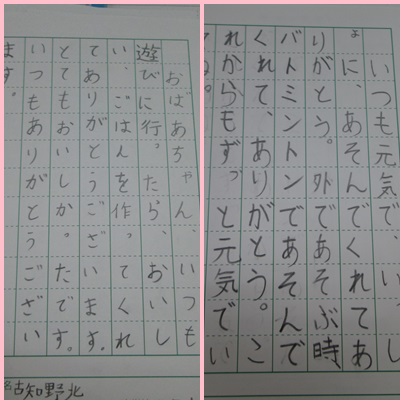 おばあちゃん、いつも
遊びに行ったら、おいし
い、ごはんを作ってくれ
てありがとうございます。
とてもおいしかったです。
いつもありがとうござい
ます。
古知野北
いつも元気で、いっし
ょに、あそんでくれてあ
りがとう。外であそぶ時
バトミントンであそんで
くれて、ありがとう。こ
れからもずっと元気でい
てね。